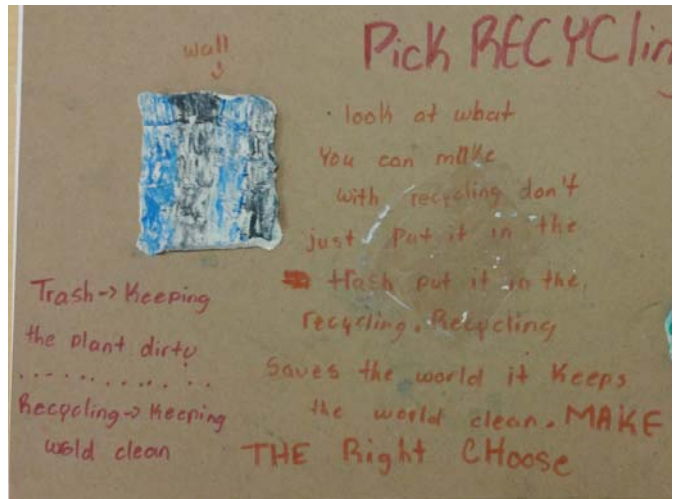 Pick RECYClin
wall
look at what
You can make
with recycling don't
just put it in the
trash put it in the
recycling. Recycling
Saves the world it Keeps
the world clean. MAKE
THE Right CHoose
Trash -> Keeping
the plant dirty
Recycling -> Keeping
wold clean